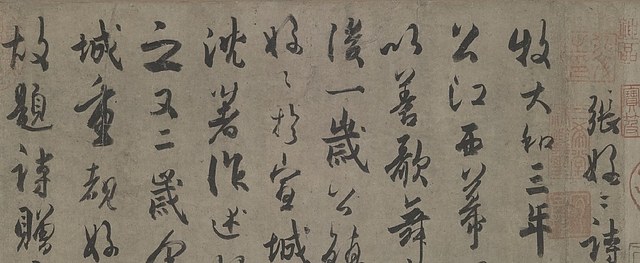 張好〻詩
牧大和三年
公江西幕
以善歌舞
後一歲公鎮
好〻於宣城
沈著作述
之又二歲
城重覩好
故題詩贈